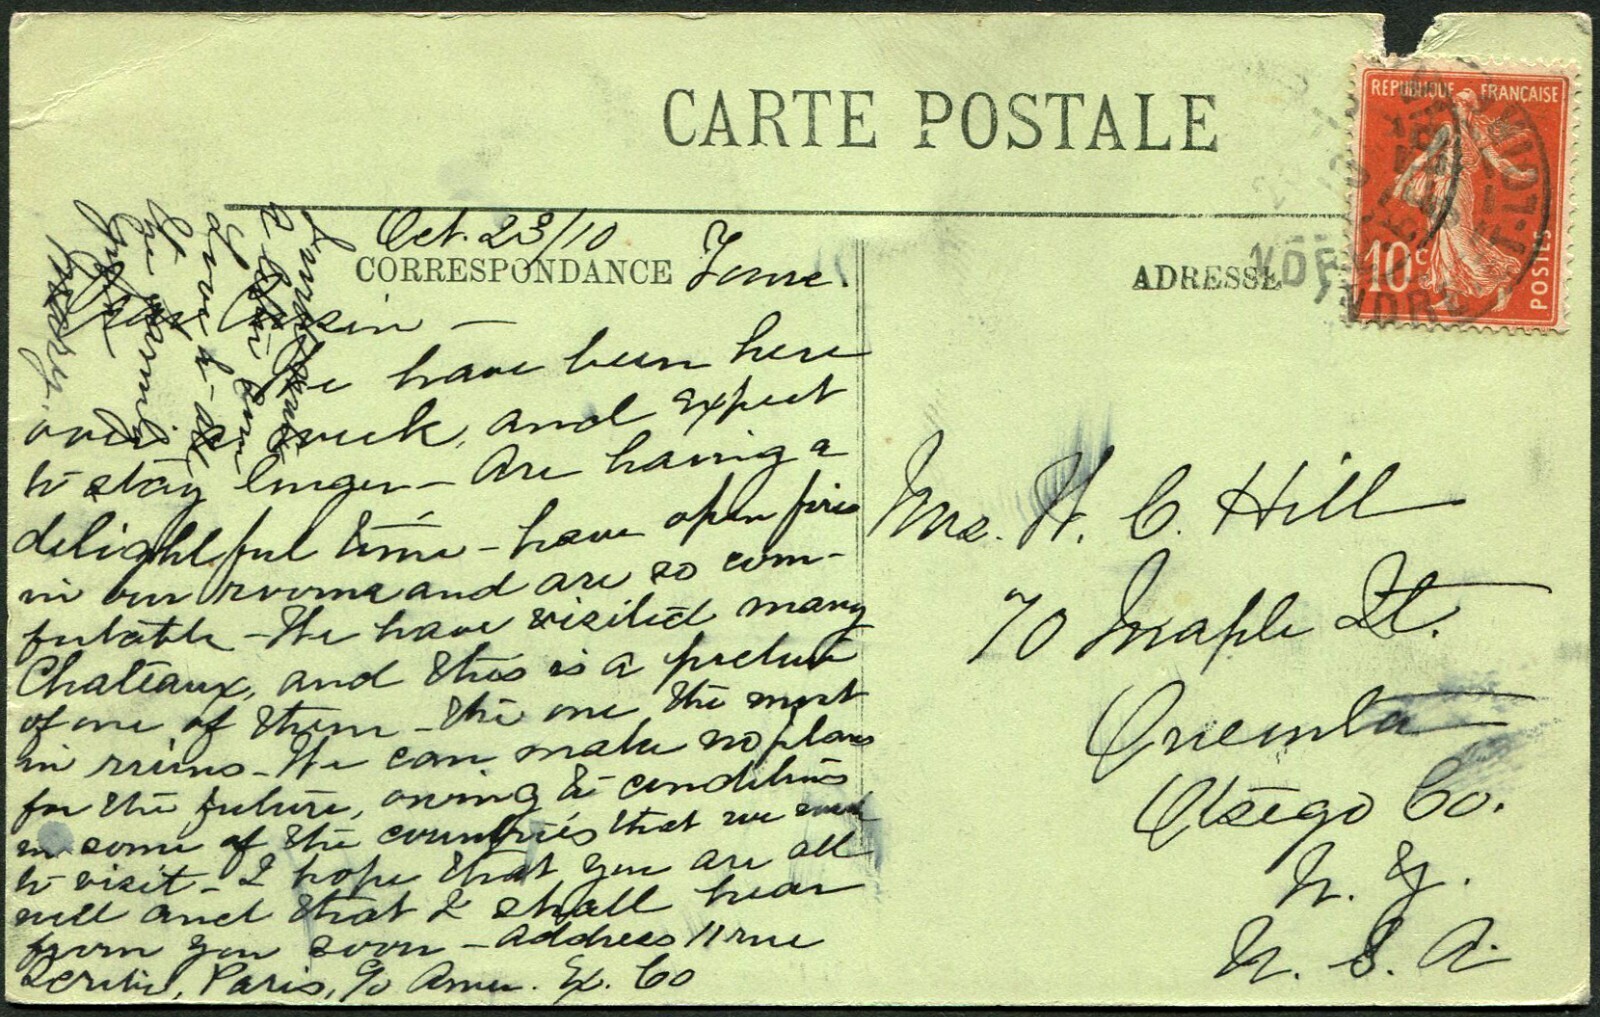 CARTE POSTALE
REPUBLIQUE FRANÇAISE
10c
POSTES
INDRE
CORRESPONDANCE
ADRESSE
Oct. 23/10
Tours.
Dear Cousin –
We have been here
over a week, and expect
to stay longer – Are having a
delightful time – have open fires
in our rooms and are so com-
fortable – We have visited many
Chateaux, and this is a picture
of one of them – the one the most
in ruins – We can make no plans
for the future, owing to conditions
in some of the countries that we wish
to visit – I hope that you are all
well and that I shall hear
from you soon – Address 11 rue
Scribe, Paris, c/o Amer. Ex. Co
Love to all
the family
Mrs. H. C. Hill
70 Maple St.
Oneonta
Otsego Co.
N. Y.
U. S. A.